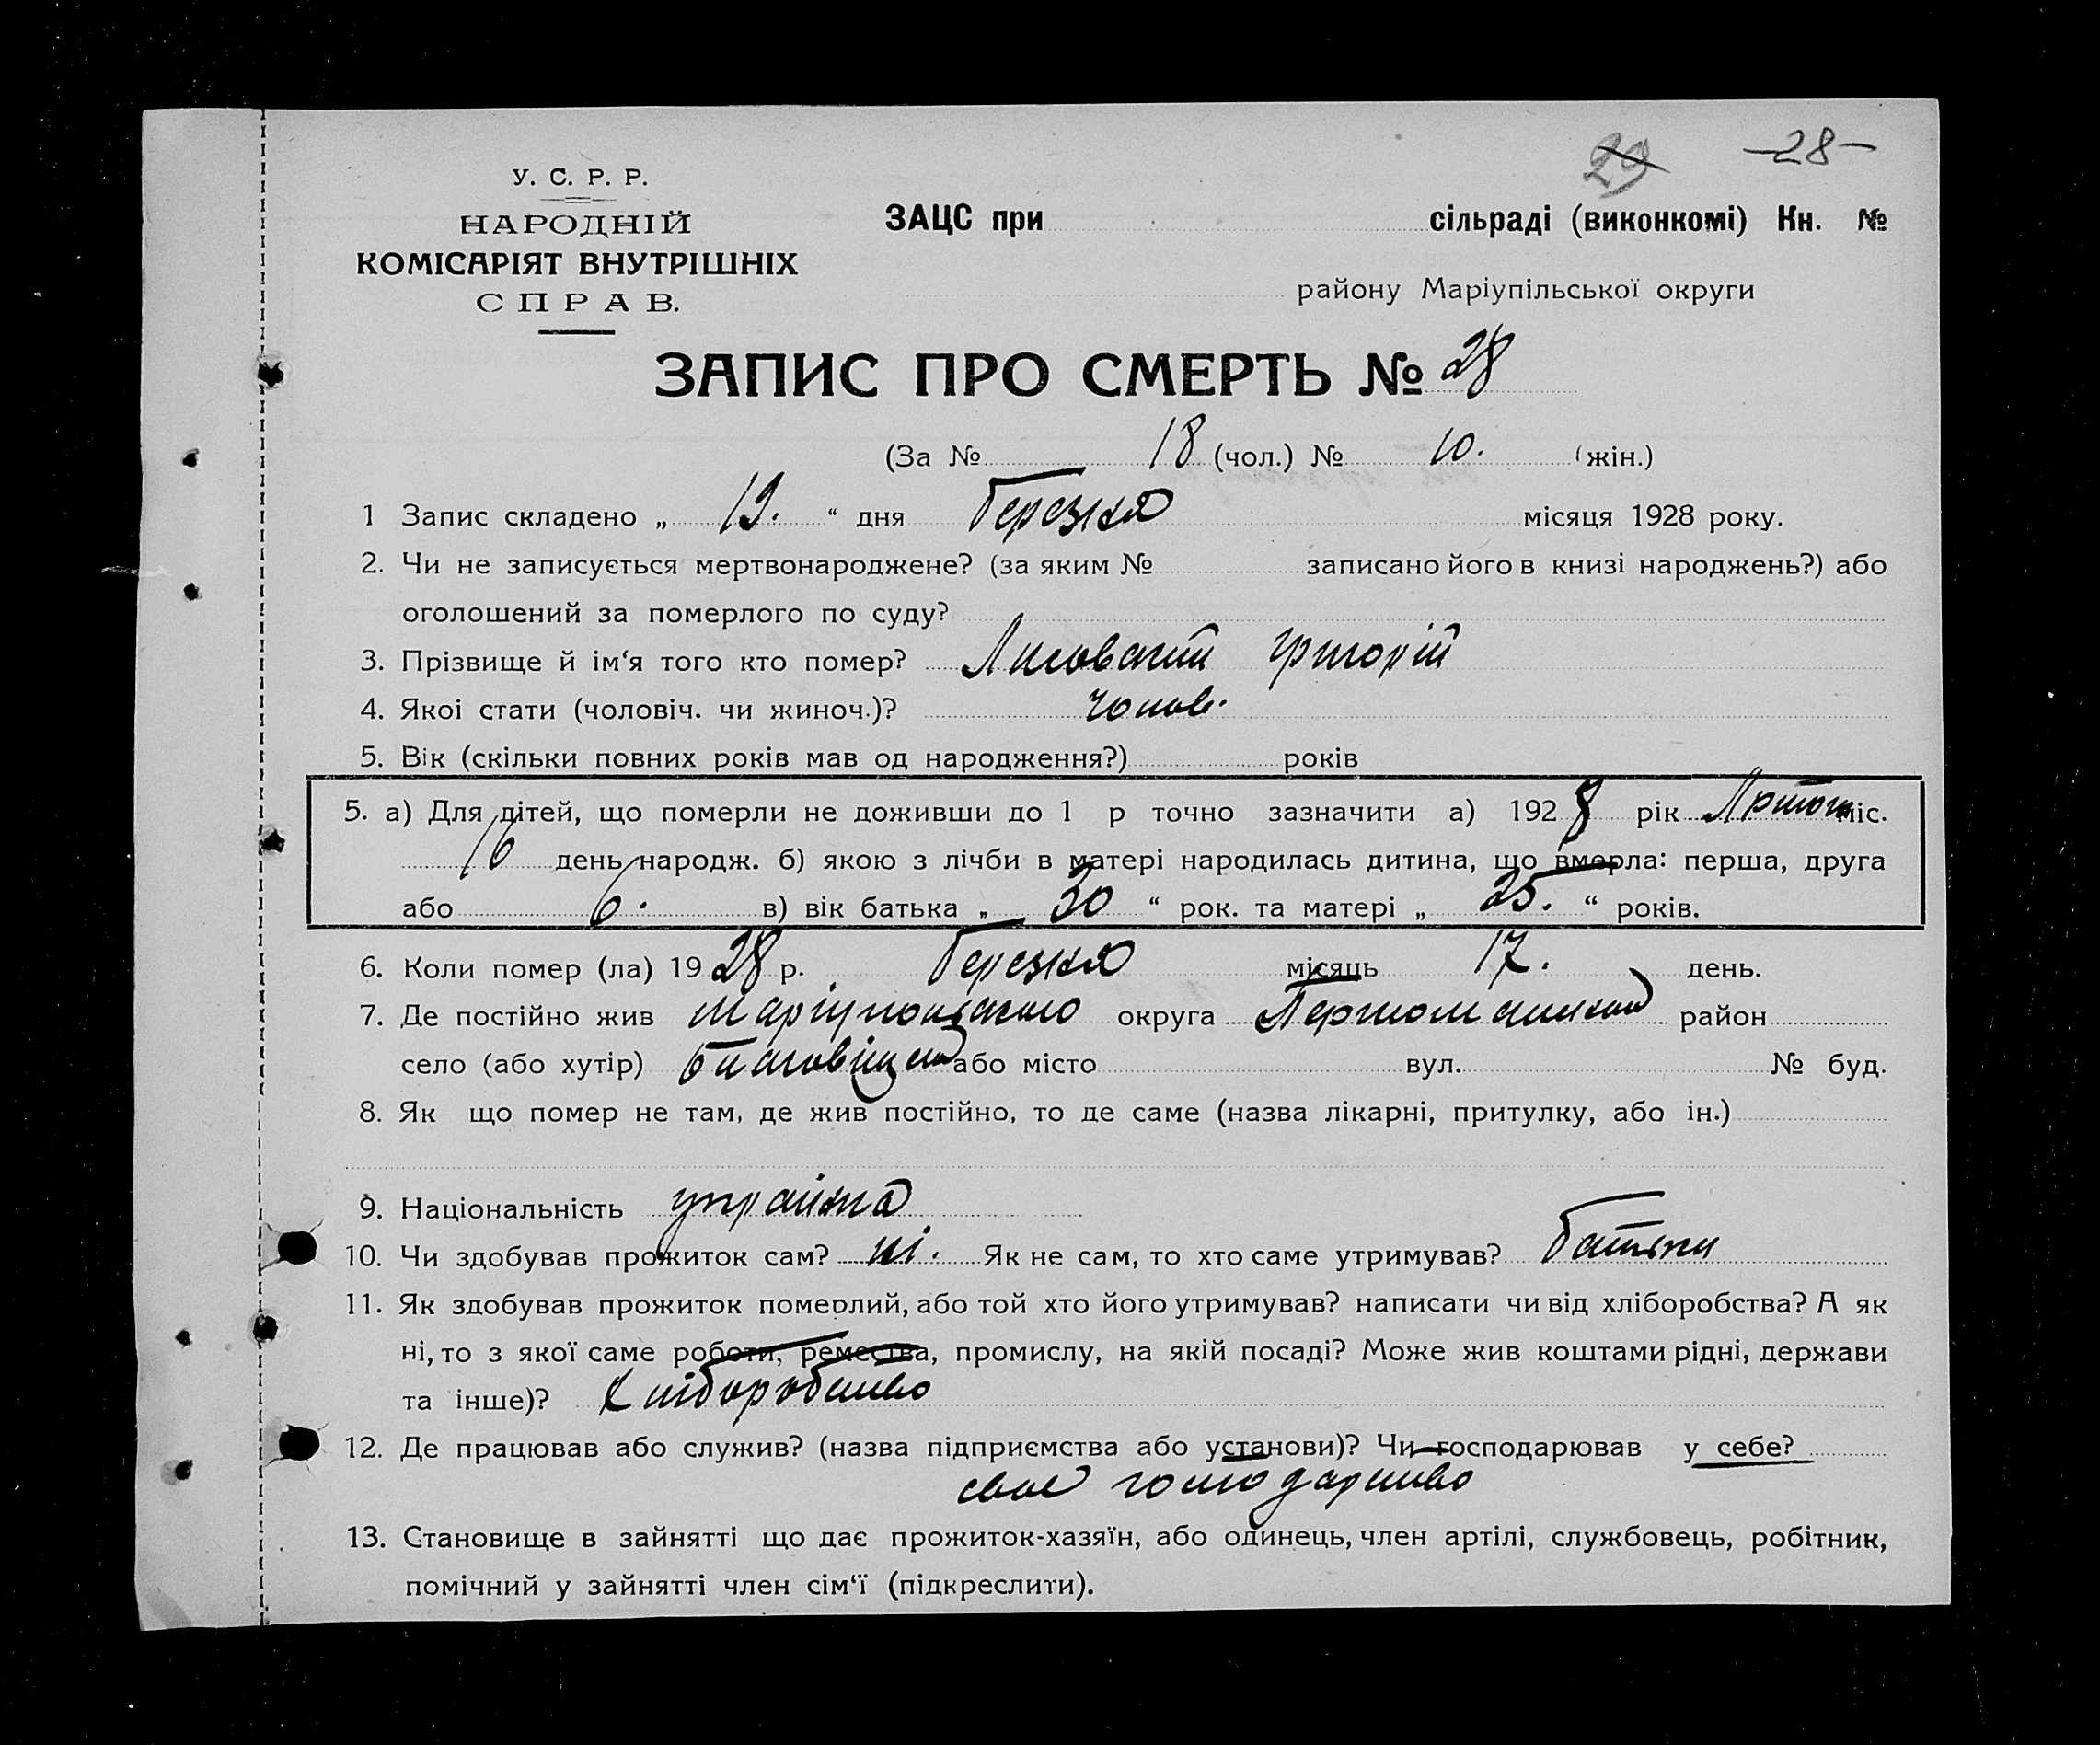 29 -28-
У. С. Р. Р.
НАРОДНІЙ
КОМІСАРІЯТ ВНУТРІШНІХ
СПРАВ.
ЗАЦС при сільраді (виконкомі) Кн. №
району Маріупільської округи
ЗАПИС ПРО СМЕРТЬ № 28
(За № 18 (чол.) № 10. (жін.)
1 Запис складено „ 19. “ дня Березня місяця 1928 року.
2. Чи не записується мертвонароджене? (за яким № записано його в книзі народжень?) або
оголошений за померлого по суду?
3. Прізвище й ім‘я того кто помер? Лисовский Григорій
4. Якоі стати (чоловіч. чи жиноч.)? чолов.
5. Вік (скільки повних років мав од народження?) років
5. а) Для дітей, що померли не доживши до 1 р точно зазначити а) 1928 рік міс.
16 день народж. б) якою з лічби в матері народилась дитина, що вмерла: перша, друга
або 6. в) вік батька „ 30 “ рок. та матері „ 25. “ років.
6. Коли помер (ла) 1928 р. Березня місяць 17. день.
7. Де постійно жив округа район
село (або хутір) або місто вул. № буд.
8. Як що помер не там, де жив постійно, то де саме (назва лікарні, притулку, або ін.)
9. Національність
10. Чи здобував прожиток сам? ні. Як не сам, то хто саме утримував? батьки
11. Як здобував прожиток померлий, або той хто його утримував? написати чи від хліборобства? А як
ні, то з якої саме роботи, ремества, промислу, на якій посаді? Може жив коштами рідні, держави
та інше)? Хліборобство
12. Де працював або служив? (назва підприємства або установи)? Чи господарював у себе?
своє господарство
13. Становище в зайнятті що дає прожиток-хазяїн, або одинець, член артілі, службовець, робітник,
помічний у зайнятті член сім‘ї (підкреслити).